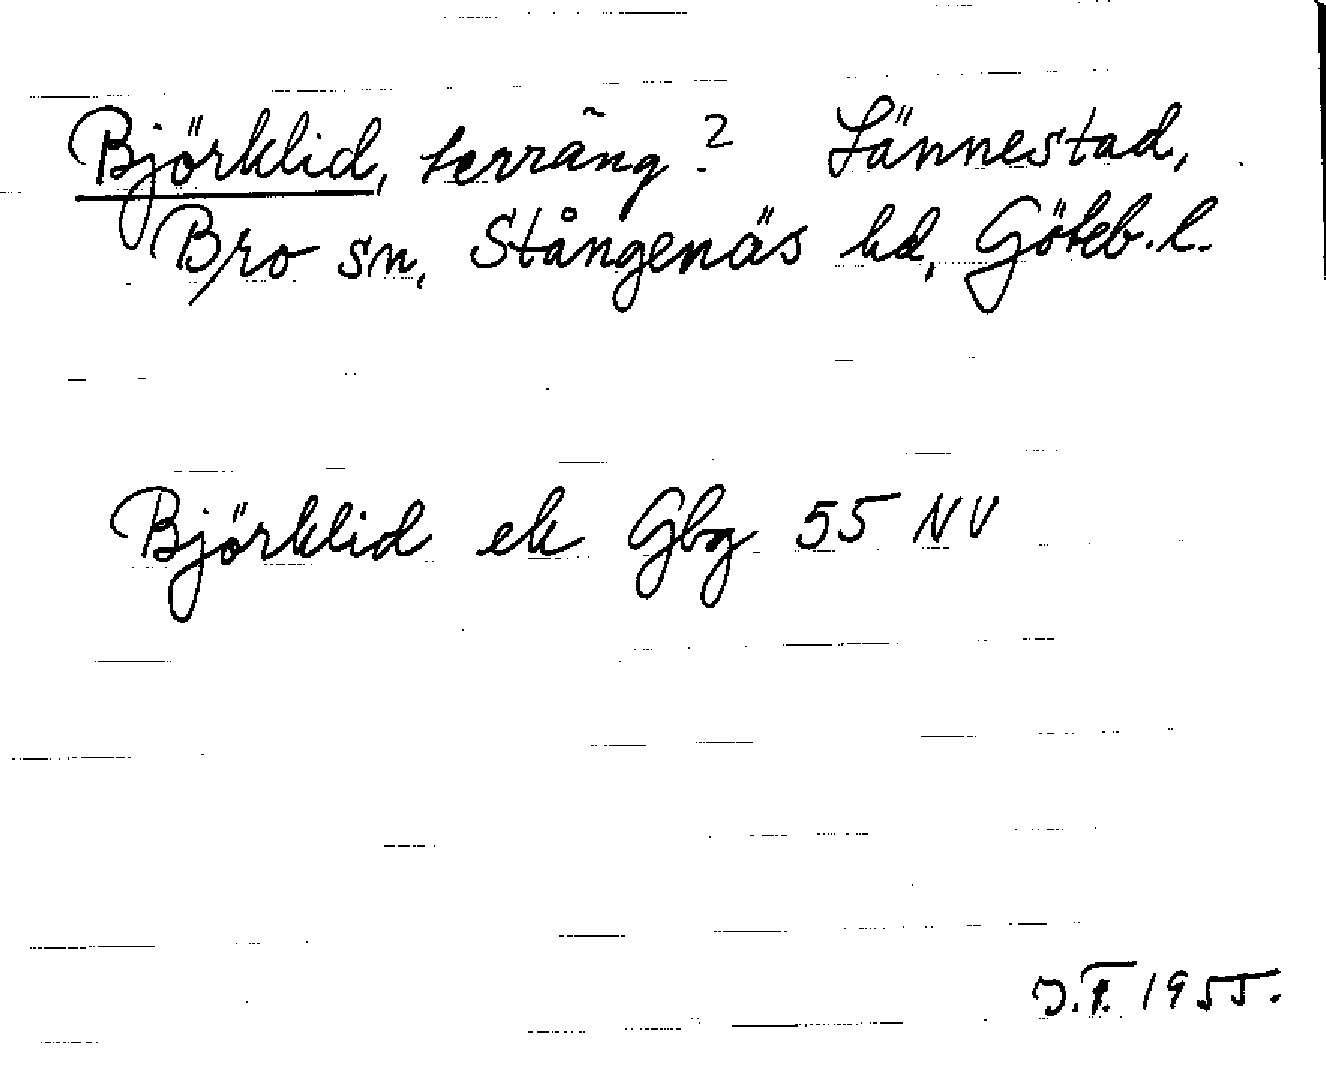 Björklid, terräng? Lännestad,
Bro sn, Stångenäs hd, Göteb. l.
Björklid ek Gbg 55 NV
J.F. 1955.